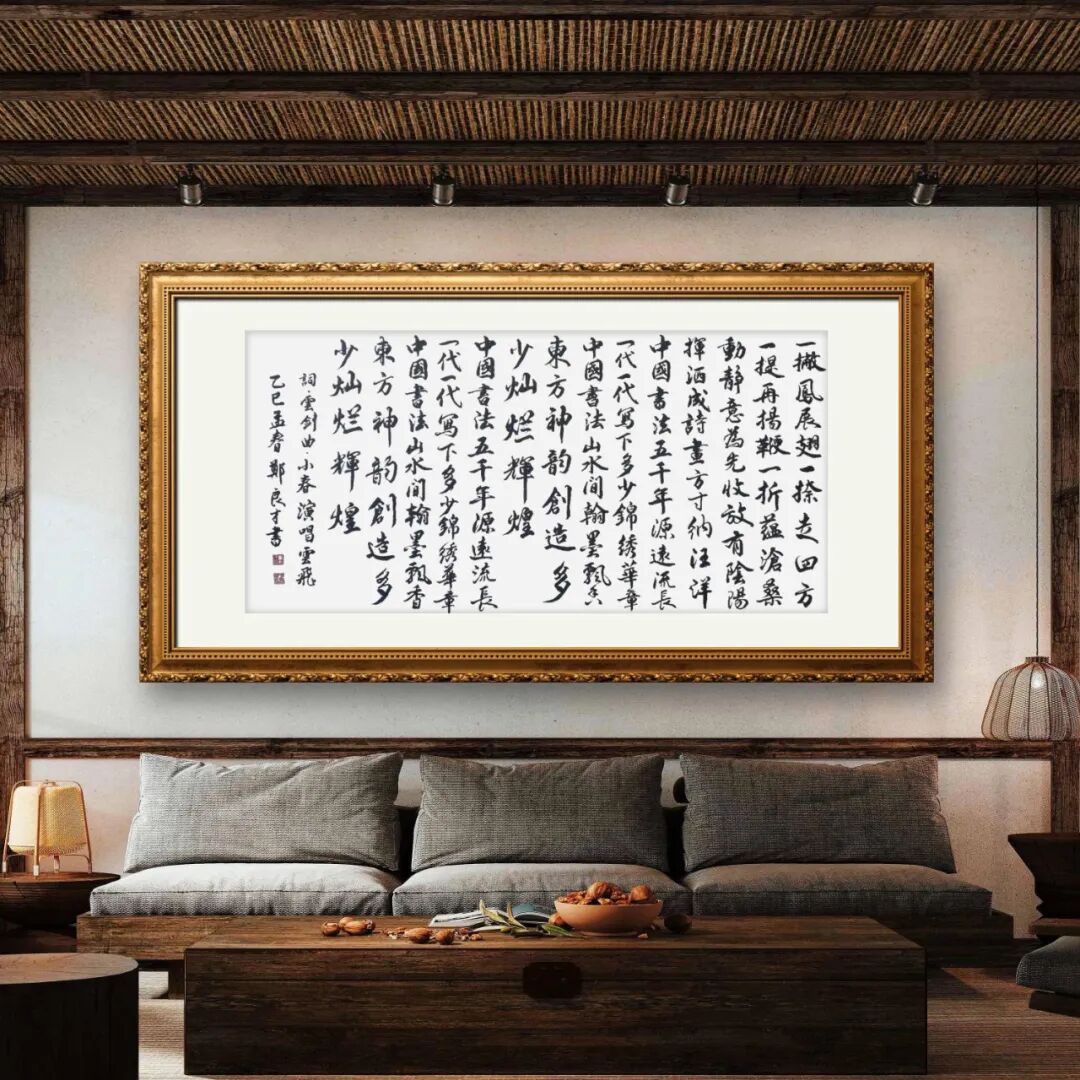 一撇鳳展翅一捺走四方
一提再揚鞭一折蘊滄桑
動靜意為先收放有陰陽
揮洒成詩畫方寸納汪洋
中國書法五千年源遠流長
一代一代寫下多少錦綉華章
中國書法山水间翰墨飘香
東方神韵創造多
少灿烂輝煌
中國書法五千年源遠流長
一代一代寫下多少錦綉華章
中國書法山水间翰墨飘香
東方神韵創造多
少灿烂輝煌
詞·雲剑曲·小春演唱雲飛
乙巳孟春鄭良才書